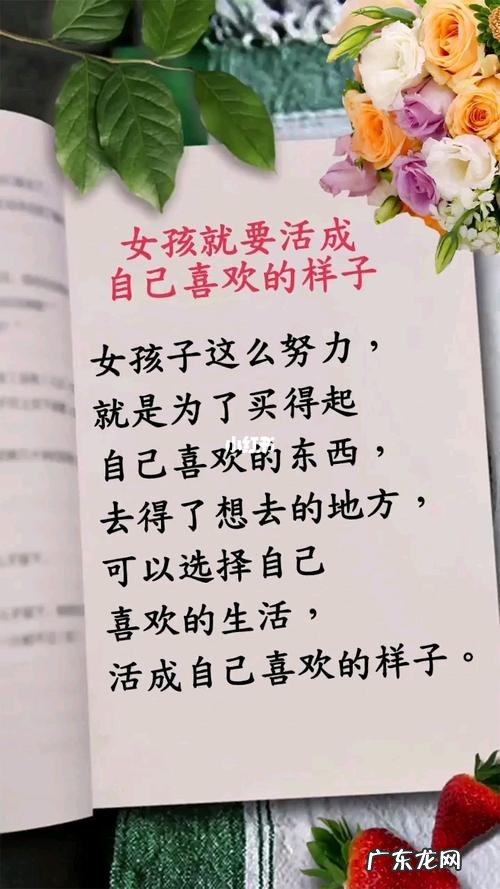 女孩就要活成
自己喜欢的样子
女孩子这么努力，
就是为了买得起
小红书
自己喜欢的东西，
去得了想去的地方，
可以选择自己
喜欢的生活，
活成自己喜欢的样子。
广东龙网